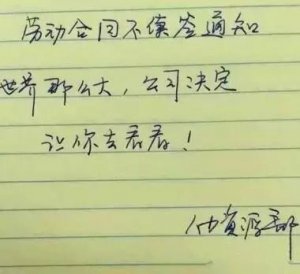 劳动合同不续签通知
世界那么大，公司决定
让你去看看！
人力资源部